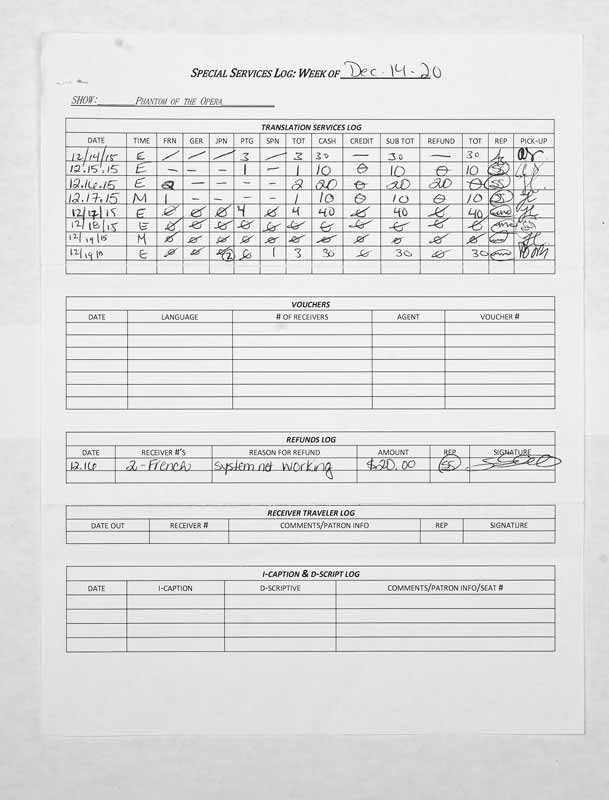 SPECIAL SERVICES LOG: WEEK OF Dec. 14-20
SHOW: PHANTOM OF THE OPERA
TRANSLATION SERVICES LOG
DATE TIME FRN GER JPN PTG SPN TOT CASH CREDIT SUB TOT REFUND TOT REP PICK-UP
12/14/15 E / / / 3 / 3 30 — 30 — 30
12.15.15 E - - - 1 - 1 10 0 10 0 10 SS
12.16.15 E 2 - - - - 2 20 0 20 20 0 SS
12.17.15 M 1 - - - - 1 10 0 10 0 10 SS
12/17/15 E 0 0 0 4 0 4 40 0 40 0 40
12/18/15 E 0 0 0 0 0 0 0 0 0 0 0
12/19/15 M 0 0 0 0 0 0 0 0 0 0 0
12/19/15 E 0 0 2 0 1 3 30 0 30 0 30
VOUCHERS
DATE LANGUAGE # OF RECEIVERS AGENT VOUCHER #
REFUNDS LOG
DATE RECEIVER #'S REASON FOR REFUND AMOUNT REP SIGNATURE
12.16 2-French system not working $20.00 SS
RECEIVER TRAVELER LOG
DATE OUT RECEIVER # COMMENTS/PATRON INFO REP SIGNATURE
I-CAPTION & D-SCRIPT LOG
DATE I-CAPTION D-SCRIPTIVE COMMENTS/PATRON INFO/SEAT #